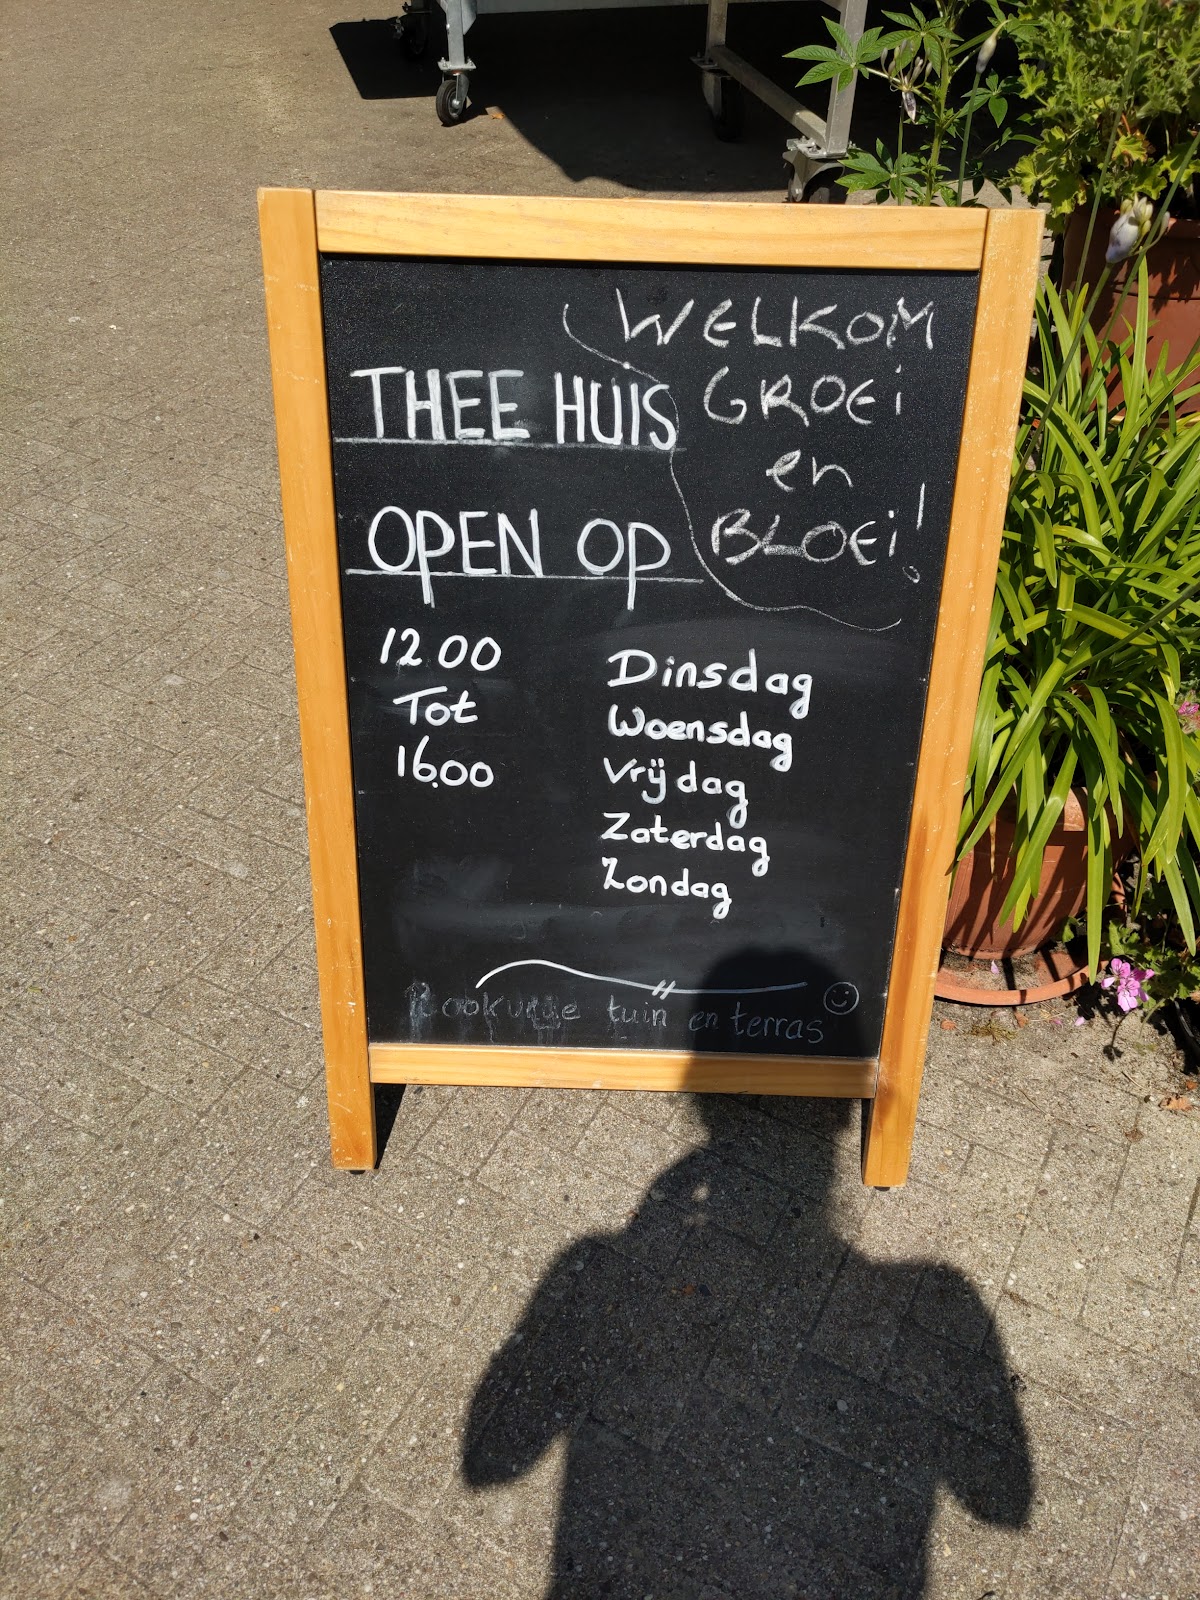 WELKOM
GROEi
en
BLOEi!
THEE HUIS
OPEN OP
12 00
Tot
16.00
Dinsdag
Woensdag
Vrijdag
Zaterdag
Zondag
Rookvrije tuin en terras